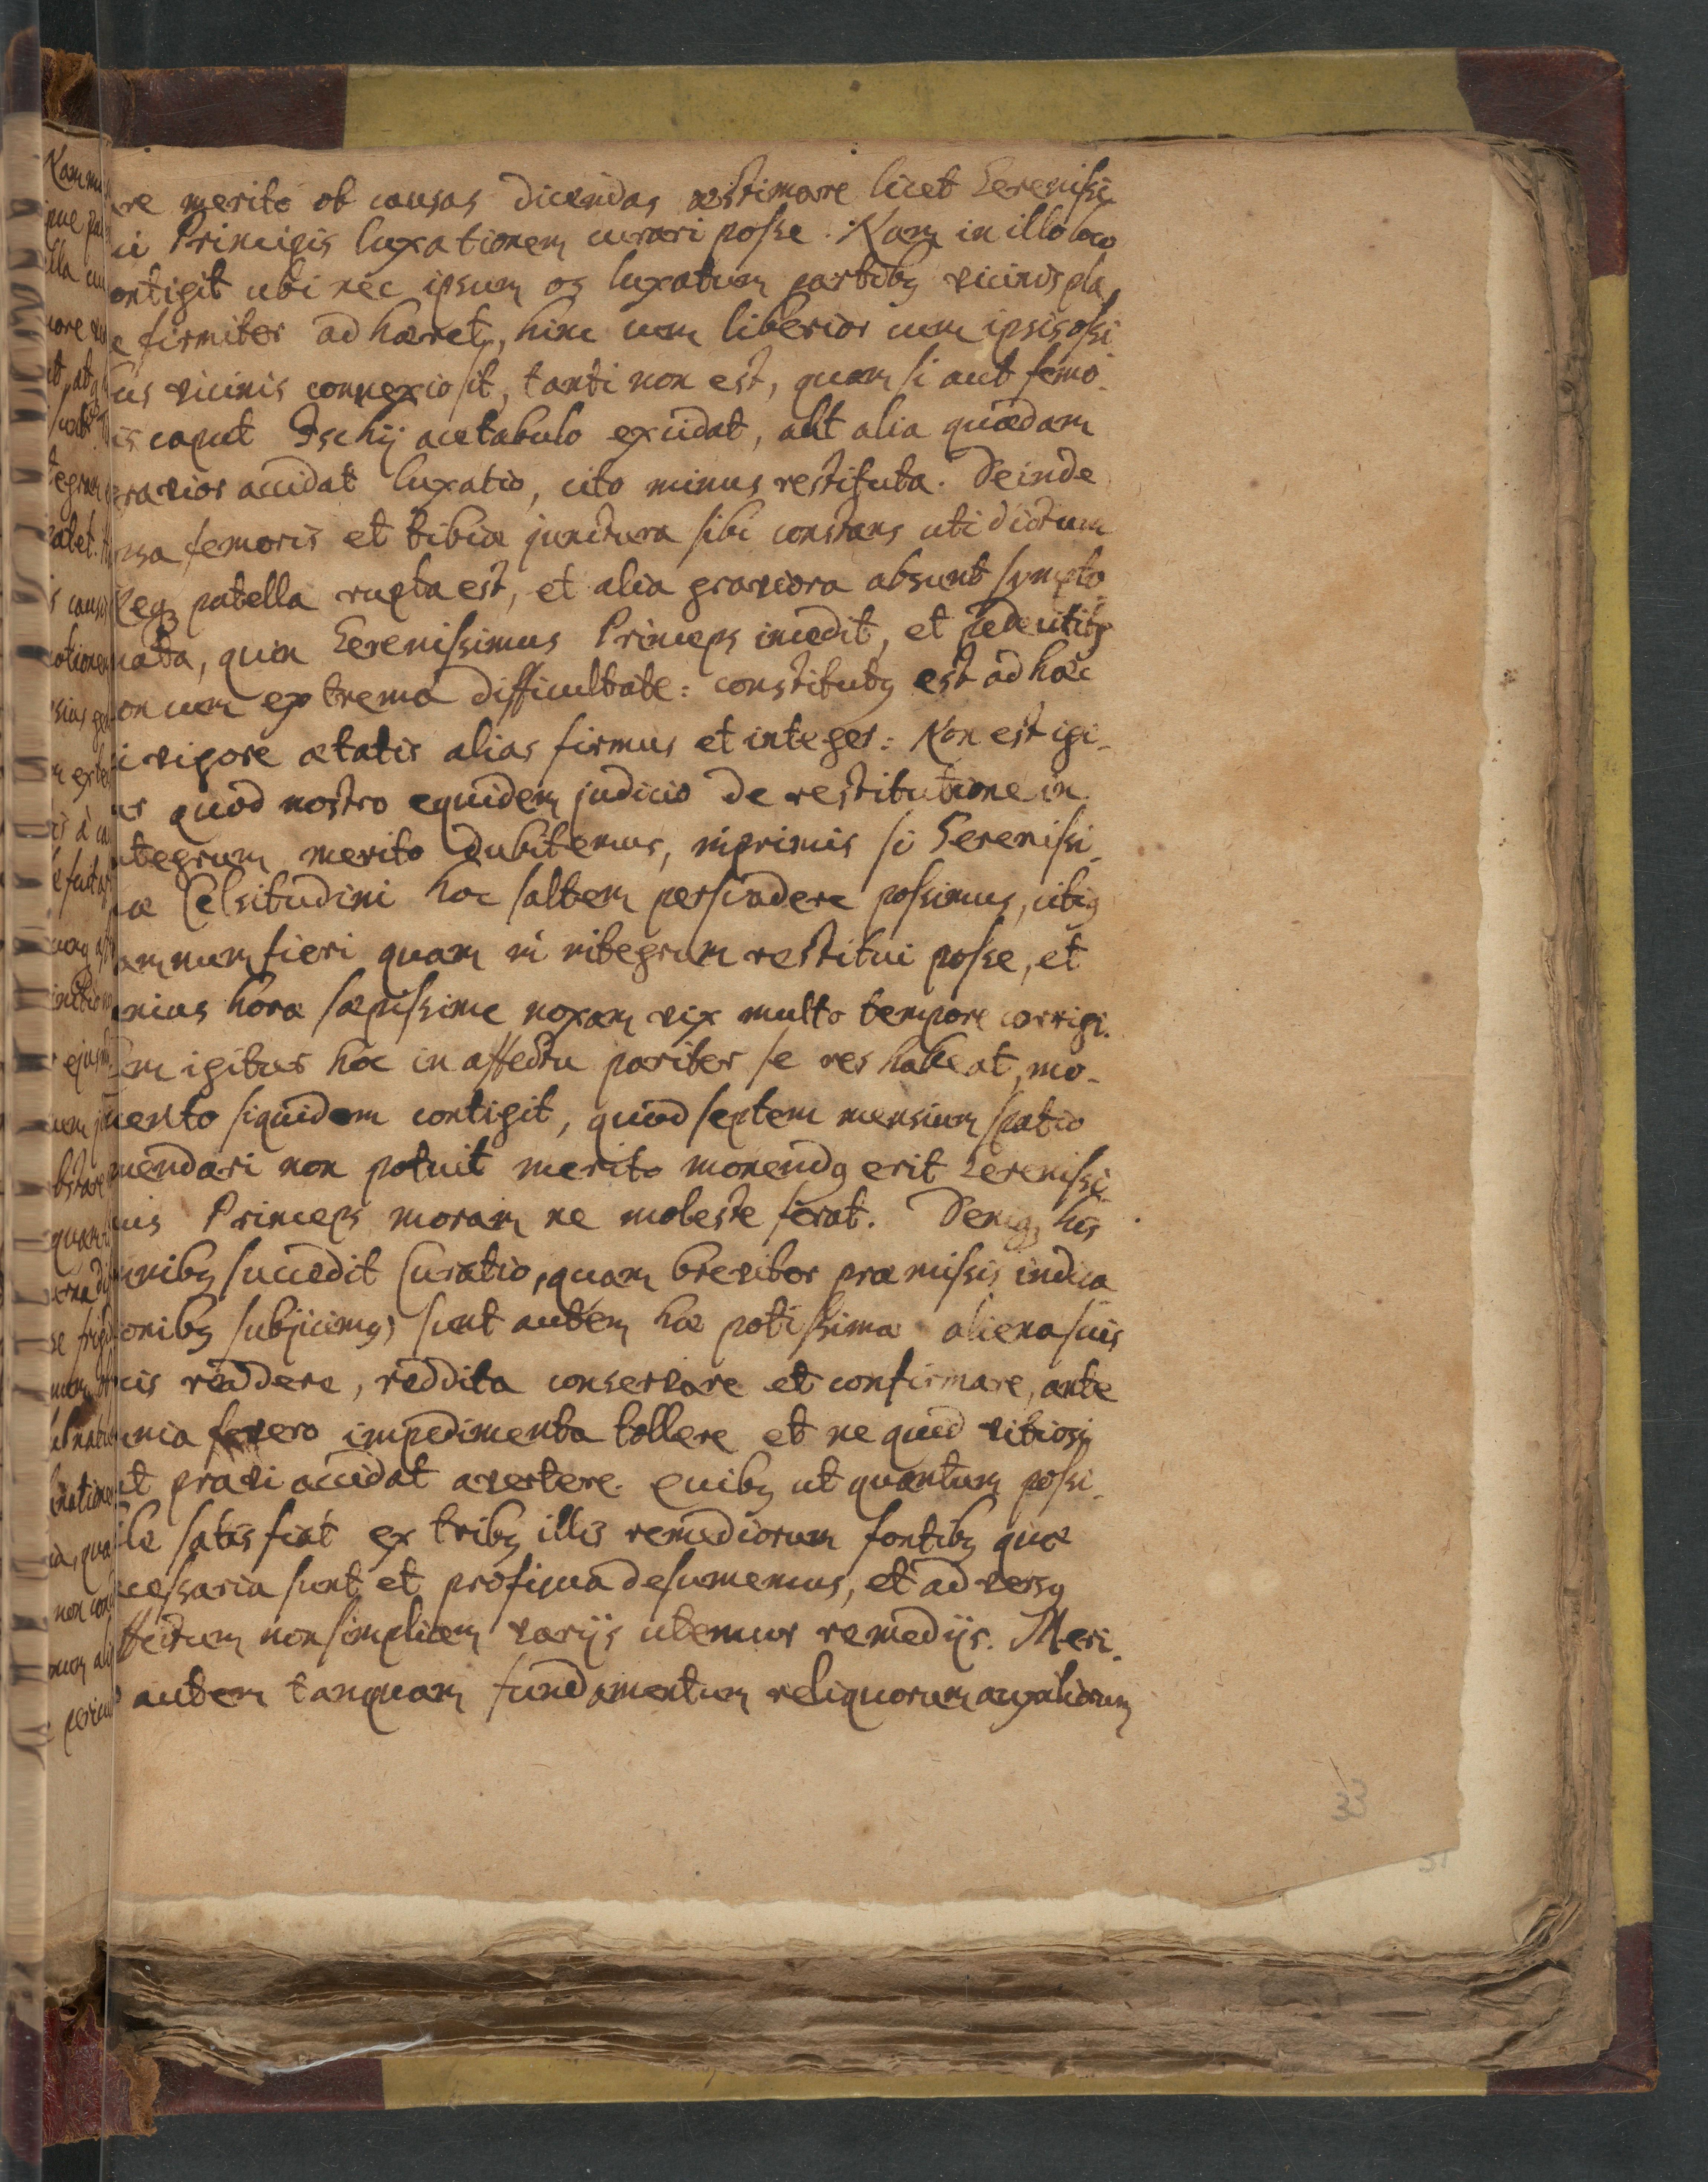 re merito ob causas dicendas æstimare licet Serenissi-
i Principis luxationem curari posse. Nam in illo loco
ontigit ubi nec ipsum os luxatum partibq vicinis pla
e firmiter adhæret, hinc cum liberior cum ipsis ossi
us vicinis connexio sit, tanti non est, quam si aut femo-
is caput Ischij acetabulo excidat, aut alia quædam
gravior accidat luxatio, cito minus restituta. Deinde
psa femoris et tibiæ junctura sibi constans uti dictum
Neq patella rupta est, et alia graviora absunt sympto-
mata, quin Serenissimus Princeps incedit, et pede utitur
on cum extrema difficultate: constitutq est ad hæc
i vigore ætatis alias firmus et integer: Non est igi-
ur quod nostro equidem judicio de restitutione in
ntegrum merito dubitemus, inprimis si Serenissi-
æ Celsitudini hoc saltem persuadere possimus, citiq
amnum fieri quam in integrum restitui posse, et
nius horæ sæpissime noxam vix multo tempore corrigi.
um igitur hoc in affectu pariter se res habeat, mo-
mento siquidem contigit, quod septem mensium spatio
mendari non potuit merito monendq erit Serenissi-
us Princeps moram ne moleste ferat. Deniq his
mnibq succedit Curatio, quam breviter præmissis indica
onibq subjicimq, sunt autem hæ potissimæ aliena suis
cis reddere, reddita conservare et confirmare, ante
mnia vero impedimenta tollere et ne quid vitiosi
ut pravi accidat avertere. Quibq ut quantum possi-
ile satisfiat ex tribq illis remediorum fontibq quæ
cessaria sunt et proficua desumemus, et adversq
ffectum non simplicem varijs utemur remedijs. Meri-
autem tanquam fundamentum reliquorum auxiliorum